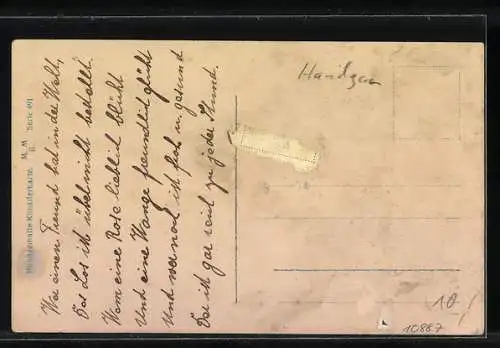 Handgemalte Künstlerkarte. M. M. B. Serie 491
Wer einen Freund hat in der Welt,
Das Los ist übel nicht bestellt.
Wem eine Rose lieblich blüht
Und eine Wange freundlich glüht
Und wer noch ist froh u. gesund
Der ist gar reich zu jeder Stund.
Handgem
10
10887